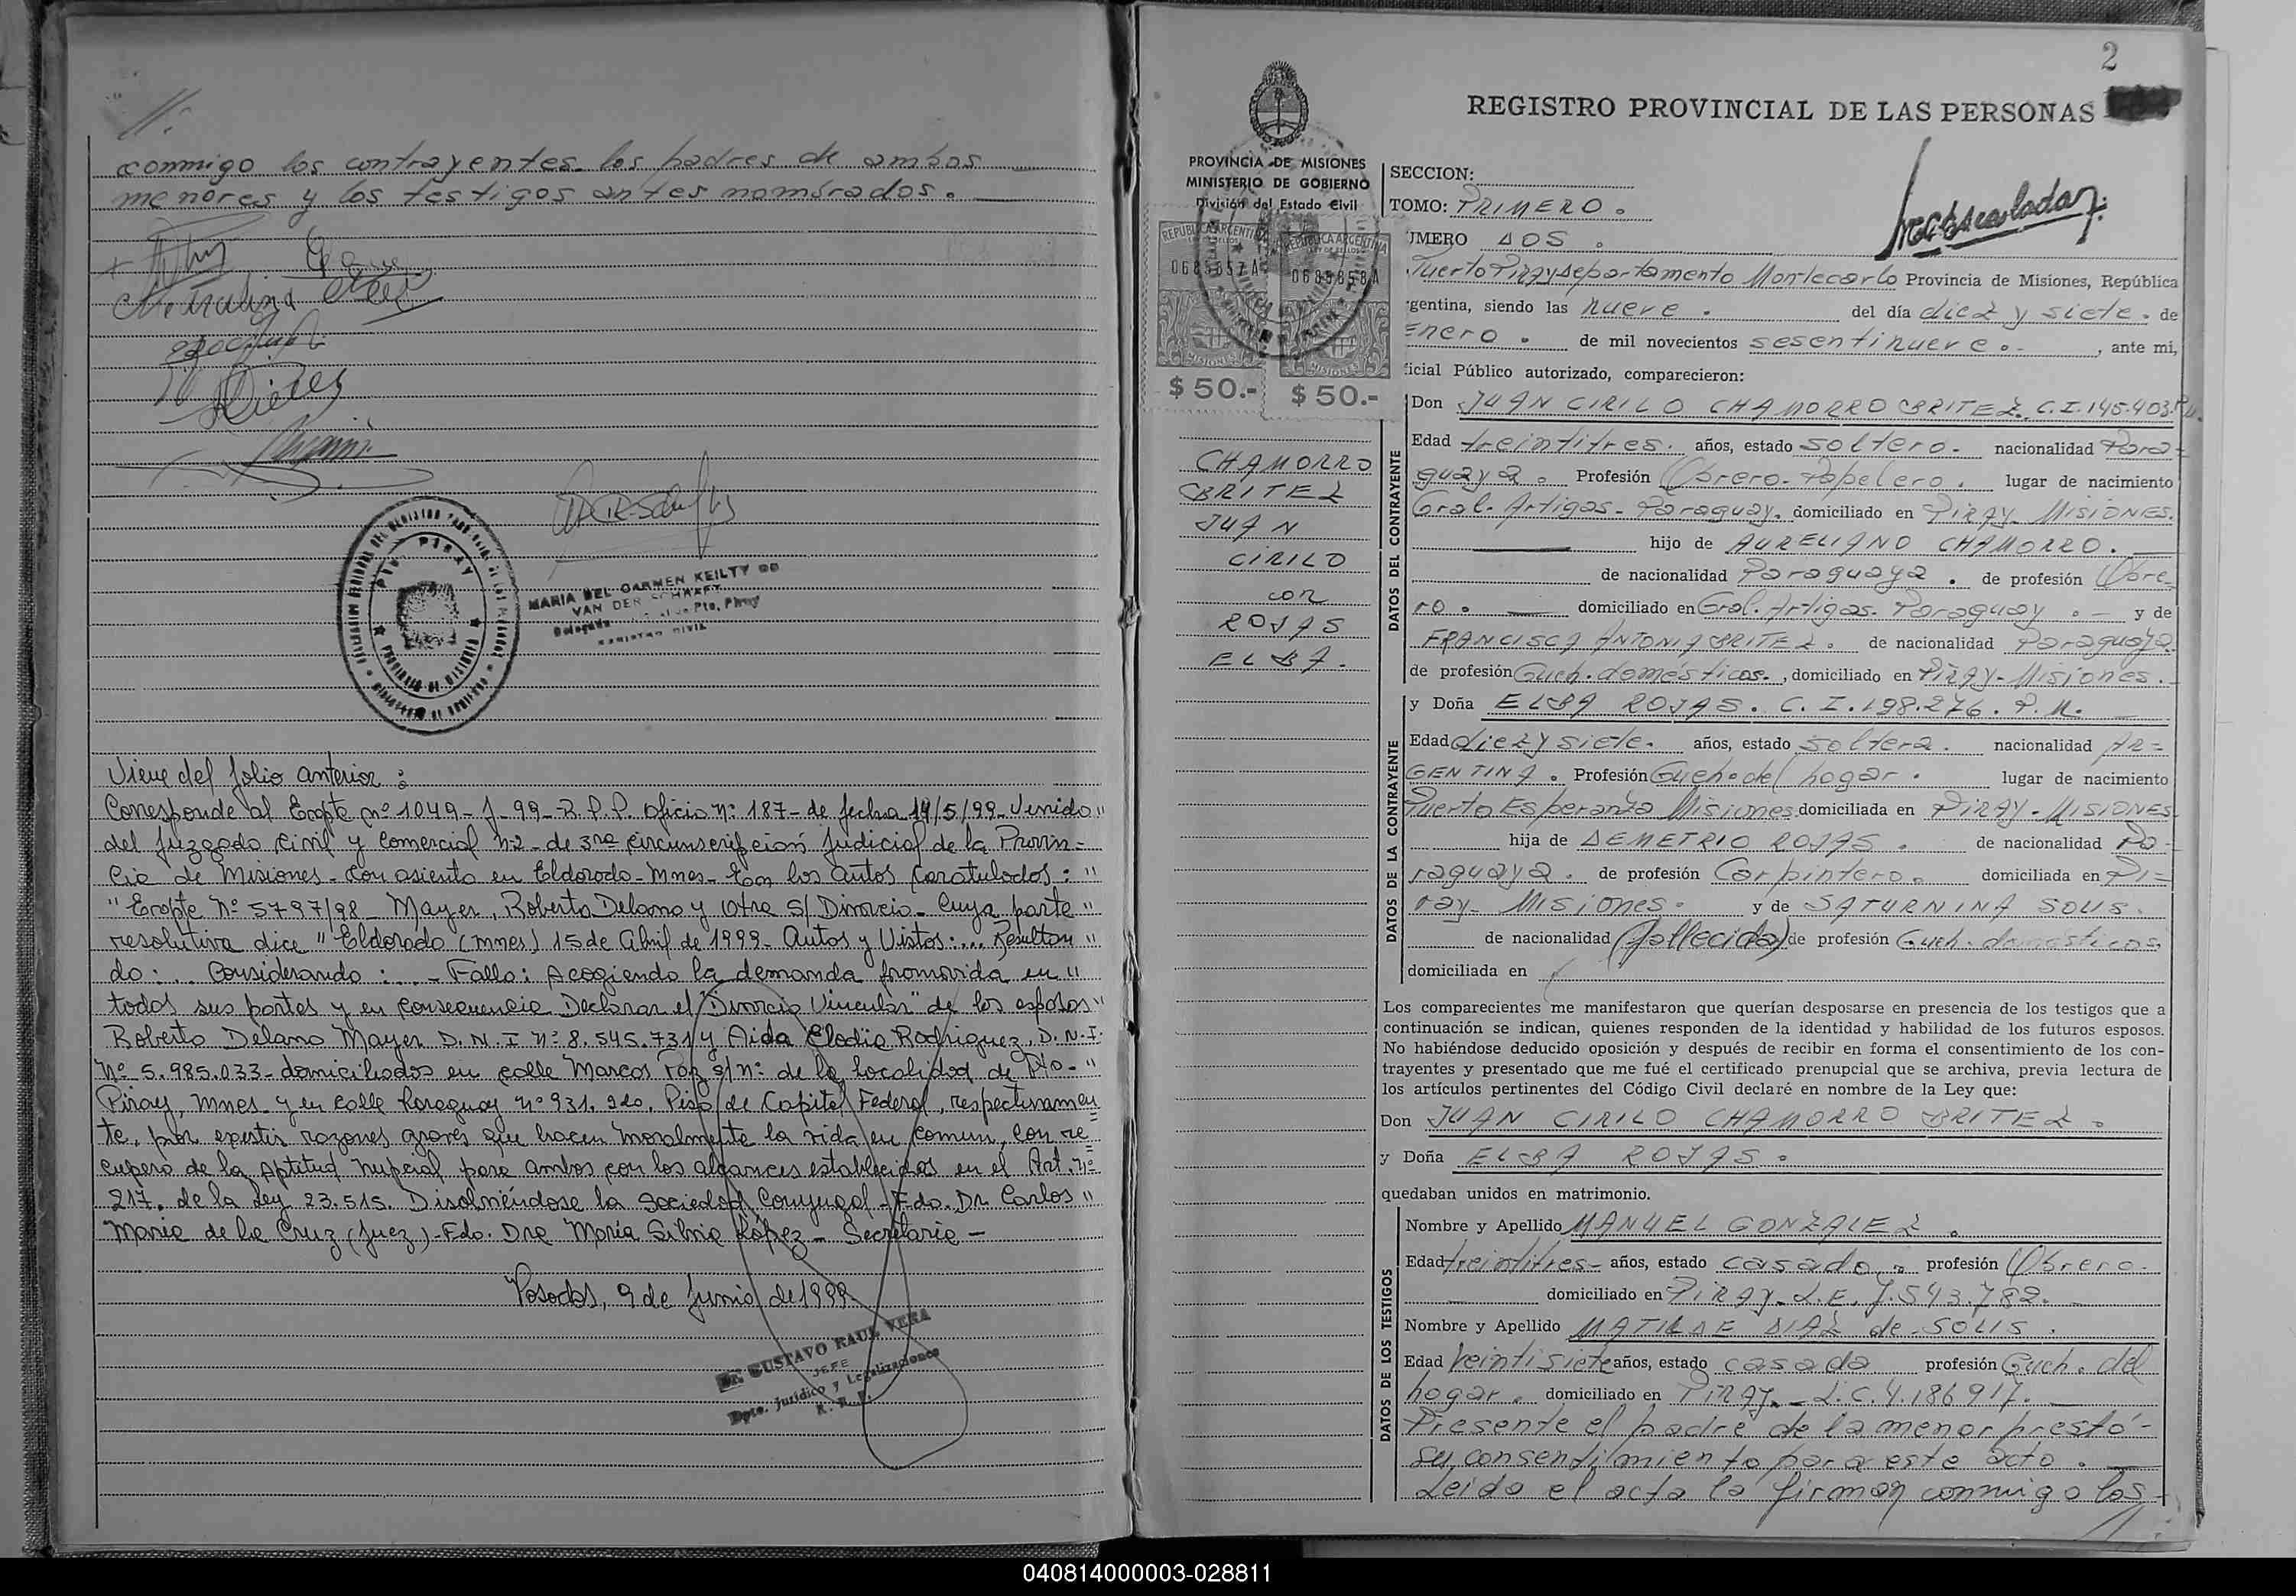 //.
conmigo los contrayentes los padres de ambos
menores y los testigos antes nombrados.
PTO. PIRAY
MARIA DEL CARMEN KEILTY DE
VAN DER SCHAAFT
Pto. Piray
REGISTRO CIVIL
Viene del folio anterior:
Corresponde al Expte nº 1049-J-99-R.P.P. Oficio nº 187- de fecha 14/5/99- Venido "
del Juzgado Civil y Comercial nº2- de 3ra circunscripción Judicial de la Provin-
cia de Misiones- con asiento en Eldorado- Mnes- En los autos Caratulados: "
"Expte Nº 5797/98- Mayer, Roberto Delano y Otra S/ Divorcio- Cuya parte "
resolutiva dice "Eldorado (Mnes) 15 de Abril de 1999- Autos y Vistos:... Resultan "
do:... Considerando:...- Fallo: Acogiendo la demanda promovida en "
todas sus partes y en consecuencia Declarar el "Divorcio Vincular" de los esposos "
Roberto Delano Mayer D.N.I nº 8.545.731 y Aida Elodia Rodriguez, D.N.I.
Nº 5.985.033- domiciliados en calle Marcos Paz s/nº de la localidad de Pto- "
Piray, Mnes- y en calle Paraguay nº 931. 2do. Piso de Capital Federal, respectivamen
te, por existir razones graves que hacen moralmente la vida en comun, con re=
cupero de la Aptitud nupcial para ambos con los alcances establecidos en el Art. nº
217. de la Ley 23.515. Disolviéndose la Sociedad Conyugal- Fdo. Dr. Carlos "
Maria de la Cruz (Juez)- Fdo. Dra Maria Silvia López- Secretaria-
Posadas, 9 de Junio de 1999.
Dr. GUSTAVO RAUL VERA
JEFE
Dpto. Jurídico y Legalizaciones
R. P. P.
2
REGISTRO PROVINCIAL DE LAS PERSONAS
PROVINCIA DE MISIONES
MINISTERIO DE GOBIERNO
División del Estado Civil
SECCION:
TOMO: PRIMERO.
UMERO DOS.
REPUBLICA ARGENTINA
0685857A
MISIONES
$ 50.-
REPUBLICA ARGENTINA
0685858A
MISIONES
$ 50.-
Puerto Piray departamento Montecarlo Provincia de Misiones, República
rgentina, siendo las nueve. del día diez y siete. de
Enero. de mil novecientos sesentinueve.- , ante mi,
icial Público autorizado, comparecieron:
CHAMORRO
BRITEZ
JUAN
CIRILO
con
ROJAS
ELBA.
DATOS DEL CONTRAYENTE
Don JUAN CIRILO CHAMORRO BRITEZ. C.I.145.403.P.M.
Edad treintitres. años, estado soltero. nacionalidad Para=
guaya. Profesión Obrero-Papelero. lugar de nacimiento
Gral. Artigas- Paraguay. domiciliado en PIRAY-MISIONES.
hijo de AURELIANO CHAMORRO.
de nacionalidad Paraguaya. de profesión Obre-
ro. domiciliado en Gral. Artigas. Paraguay.- y de
FRANCISCA ANTONIA BRITEZ. de nacionalidad Paraguaya
de profesión Queh. domésticos. , domiciliado en PIRAY-Misiones.
DATOS DE LA CONTRAYENTE
y Doña ELBA ROJAS. C.I.198.276.P.M.
Edad diez y siete. años, estado soltera. nacionalidad AR=
GENTINA. Profesión Queh. del hogar. lugar de nacimiento
Puerto Esperanza Misiones domiciliada en PIRAY-MISIONES
hija de DEMETRIO ROJAS. de nacionalidad Pa-
raguaya. de profesión Carpintero. domiciliada en Pi=
ray- Misiones. y de SATURNINA SOLIS.
de nacionalidad (fallecida) de profesión Queh. domésticos.
domiciliada en
Los comparecientes me manifestaron que querían desposarse en presencia de los testigos que a
continuación se indican, quienes responden de la identidad y habilidad de los futuros esposos.
No habiéndose deducido oposición y después de recibir en forma el consentimiento de los con-
trayentes y presentado que me fué el certificado prenupcial que se archiva, previa lectura de
los artículos pertinentes del Código Civil declaré en nombre de la Ley que:
Don JUAN CIRILO CHAMORRO BRITEZ.
y Doña ELBA ROJAS.
quedaban unidos en matrimonio.
DATOS DE LOS TESTIGOS
Nombre y Apellido MANUEL GONZALEZ.
Edad treintitres- años, estado casado. profesión Obrero-
domiciliado en PIRAY-L.E.7.543.782.
Nombre y Apellido MATILDE DIAZ de SOLIS.
Edad Veintisiete años, estado casada profesión Queh. del
hogar. domiciliado en PIRAY.-L.C.4.186917.
Presente el padre de la menor prestó-
su consentimiento para este acto.
Leida el acta la firman conmigo los
//.
040814000003-028811